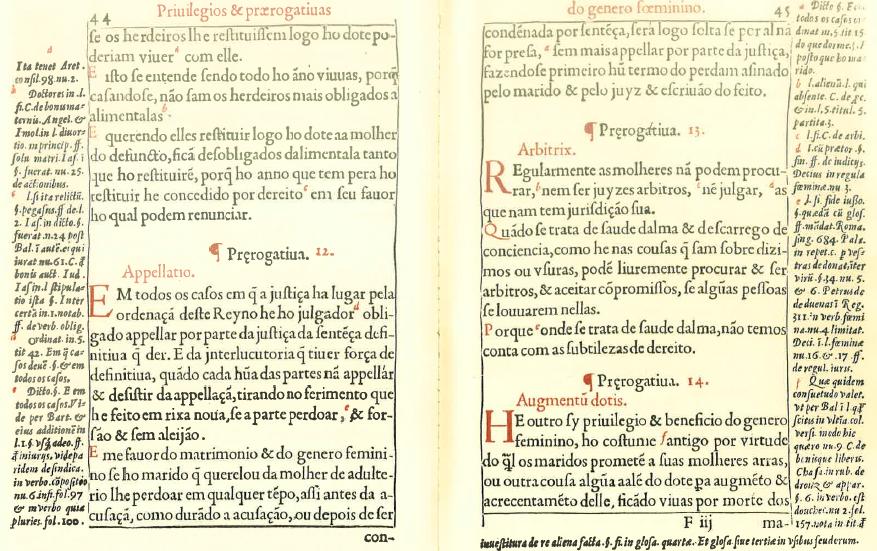 44
Priuilegios & prærogatiuas
se os herdeiros lhe restituissem logo ho dote po-
deriam viuer com elle.
E isto se entende sendo todo ho āno viuuas, porq̃
casandose, não sam os herdeiros mais obligados a
alimentalas
E querendo elles restituir logo ho dote aa molher
do defuncto, ficā desobligados dalimentala tanto
que ho restituirē, porq̃ ho anno que tem pera ho
restituir he concedido por dereito em seu fauor
ho qual podem renunciar.
¶ Pręrogatiua. 12.
Appellatio.
EM todos os casos em q̄ a justiça ha lugar pela
ordenaçā deste Reyno he ho julgador obli-
gado appellar por parte da justiça da sentēça defi-
nitiua q̄ der. E da interlucutoria q̄ tiuer força de
definitiua, quādo cada hūa das partes nā appellār
& desistir da appellaçā, tirando no ferimento que
he feito em rixa noua, se a parte perdoar, & for-
são & sem aleijão.
E me fauor do matrimonio & do genero femini-
no se ho marido q̄ querelou da molher de adulte-
rio lhe perdoar em qualquer tēpo, assi antes da a-
cusaçā, como durādo a acusação, ou depois de ser
con-
a
Ita tenet Aret.
consil. 98. nu. 2.
b
Doctores in. l.
fi. C. de bonu ma-
ternis. Angel. &
Imol. in l. diuor-
tio. in princip. ff.
solu. matri. Ias. i
§. fuerat. nu. 25.
de actionibus.
l. si ita relictū.
§. pegasus. ff. de l.
2. Ias. in dicto. §.
fuerat. n. 24. post
iurat. nu. 61. C. q̄
bonis auct. Iud.
tio ista §. Inter
certā in. 1. notab.
ff. de verb. oblig.
ordinat. in. 5.
tit 42. Em q̄ ca-
todos os casos.
Dicto. §. E em
todos os casos.
de per Bart. &
eius additionē in
ridem de sindica.
nu. 6. insi. fol. 97
& in verbo quia
pluries. fol. 100.
do genero fœminino.
45
condēnada por sentēça, serā logo solta se per al nā
for presa, sem mais appellar por parte da justiça,
fazendose primeiro hū termo do perdam asinado
pelo marido & pelo juyz & escriuão do feito.
¶ Pręrogatiua. 13.
Arbitrix.
REgularmente as molheres nā podem procu-
rar, nem ser juyzes arbitros, nē julgar, as
que nam tem jurisdição sua.
Quādo se trata de saude dalma & descarrego de
conciencia, como he nas cousas q̄ sam sobre dizi-
mos ou vsuras, podē liuremente procurar & ser
arbitros, & aceitar cōpromissos, se algūas pessoas
se louuarem nellas.
Porque onde se trata de saude dalma, não temos
conta com as subtilezas de dereito.
¶ Pręrogatiua. 14.
Augmentū dotis.
HE outro sy priuilegio & beneficio do genero
feminino, ho costume antigo por virtude
do q̄l os maridos prometē a suas molheres arras,
ou outra cousa algūa aalē do dote pa augmēto &
acrecentamēto delle, ficādo viuas por morte dos
F iij
ma-
a Dicto §.
todos os casos
do que dorme.
rido.
partita. 3.
c l. fi. C. de arbi.
d l. cū prætor. §.
fin. ff. de iudiciis.
Decius in regula
fœminæ nu. 3.
ff. mādat. Roma.
sing. 684. Pala.
in repet. c. p ves-
tras de donat. inter
& 6. Petrus de
311. in verb. fœmi
Deci. i l. fœminæ
nu. 16. & 17. ff.
de regul. iuris.
f Quæ quidem
consuetudo valet.
vt per Bal i l. q̄
scitis in vltīa col.
quæro nu. 9. C. de
Chass. in rub. de
§. 6. in verbo. est
157. nota in tit. q̄
inuestitura de re aliena facta. §. fi. in glosa. quartæ. Et glosa siue tertia in vsibus feudorum.